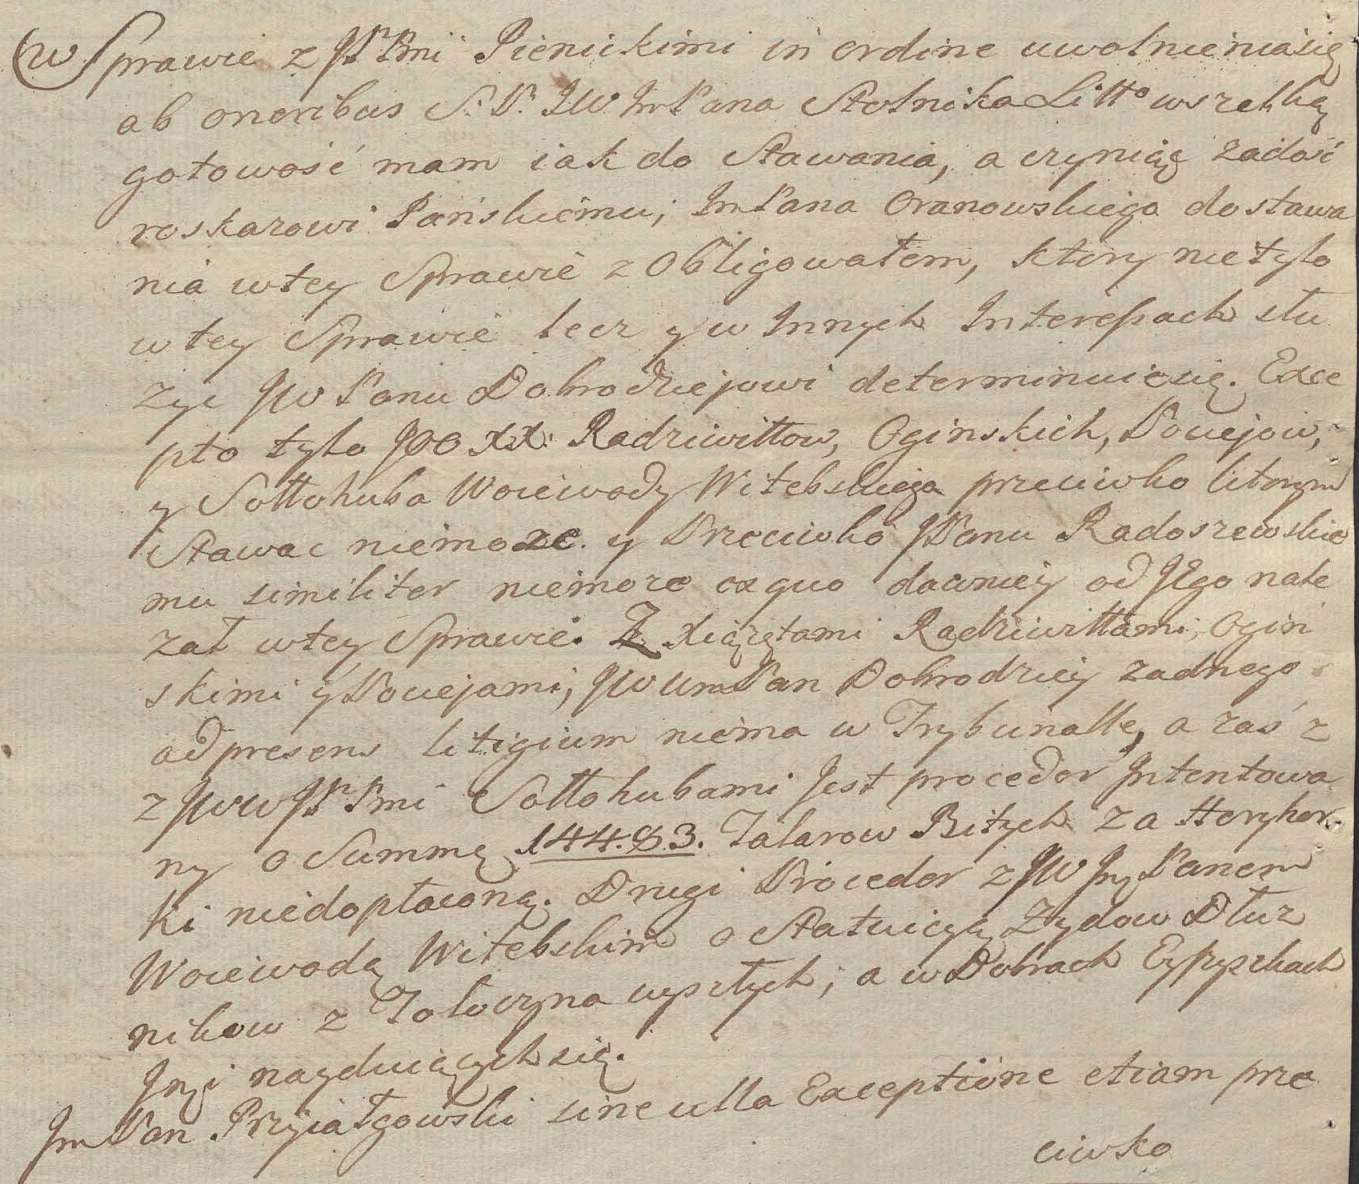 W Sprawie z JPP.mi Pienickimi in ordine uwolnienia się
ab oneribus S. P. JW Jm Pana Stolnika Litto wszelką
gotowość mam iak do stawania, a czyniąc zadość
roskazowi Pańskiemu, Jm Pana Oranowskiego do stawa
nia w tey Sprawie zobligowałem, który nietylo
w tey Sprawie lecz y w Innych Interessach słu
życ JW Panu Dobrodziejowi determinuie się. Exce
pto tylo JOO XX: Radziwiłłow, Oginskich, Pociejow,
y Sołłohuba Woiewody Witebskiego przeciwko ktorym
stawac niemoze. y Przeciwko JPanu Radoszewskie
mu similiter niemoze ex quo dawniey od Jego nale
zał w tey Sprawie. Z Xiązętami Radziwiłłami, Ogin
skimi y Pociejami, JW Wm Pan Dobrodziey zadnego
ad presens litigium niema w Trybunalle, a zaś z
z JWW JPP.mi Sołłohubami Jest proceder Intentowa
ny o Summę 144.83. Talarow Bitych za Horyhor
ki niedopłaconą. Drugi Proceder z JW Jm Panem
Woiewodą Witebskim o statuicyą Zydow Dłuz
nikow z Toloczyna wyszłych; a w Dobrach Eyszyszkach
Jmci nayduiących się.
Jm Pan Przyiałgowski sine ulla Exceptione etiam prze
ciwko